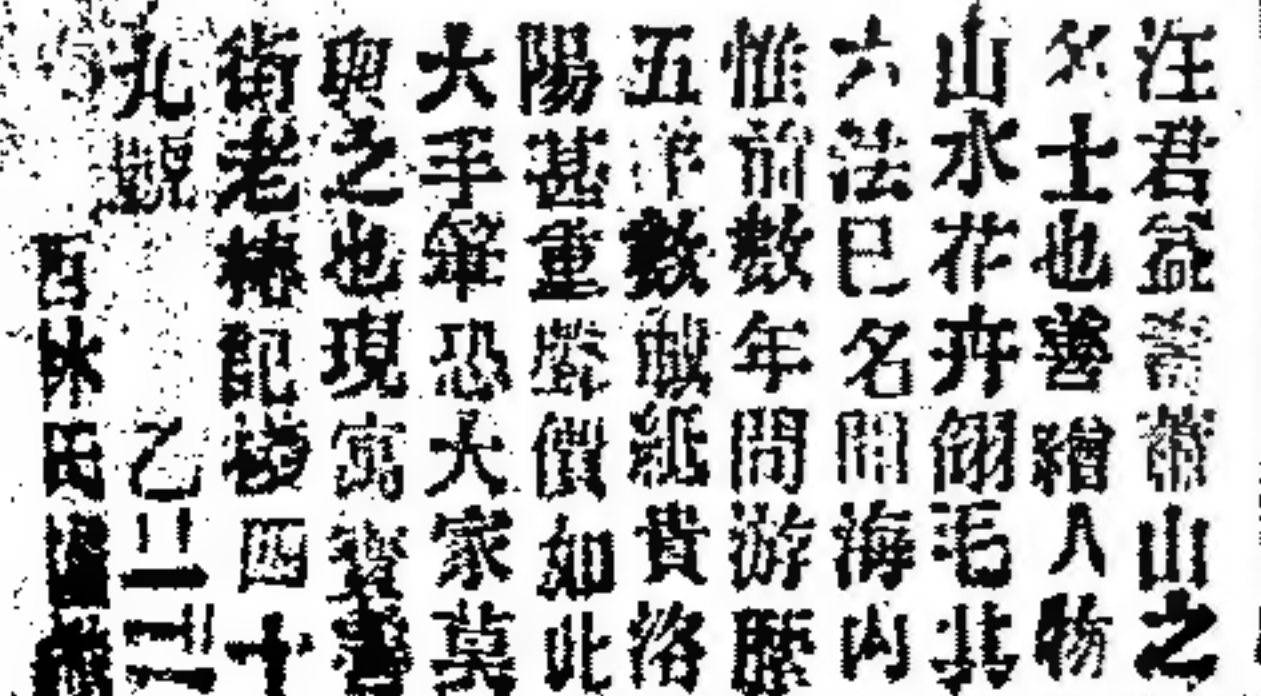 汪君益壽蕭山之
名士也善繪人物
山水花卉翎毛其
六法已名聞海內
惟前數年間游歷
五羊數幀紙貴洛
陽甚重聲價如此
大手筆恐大家莫
與之也現寓寶善
街老椿記棧四十
九號 乙
西林氏